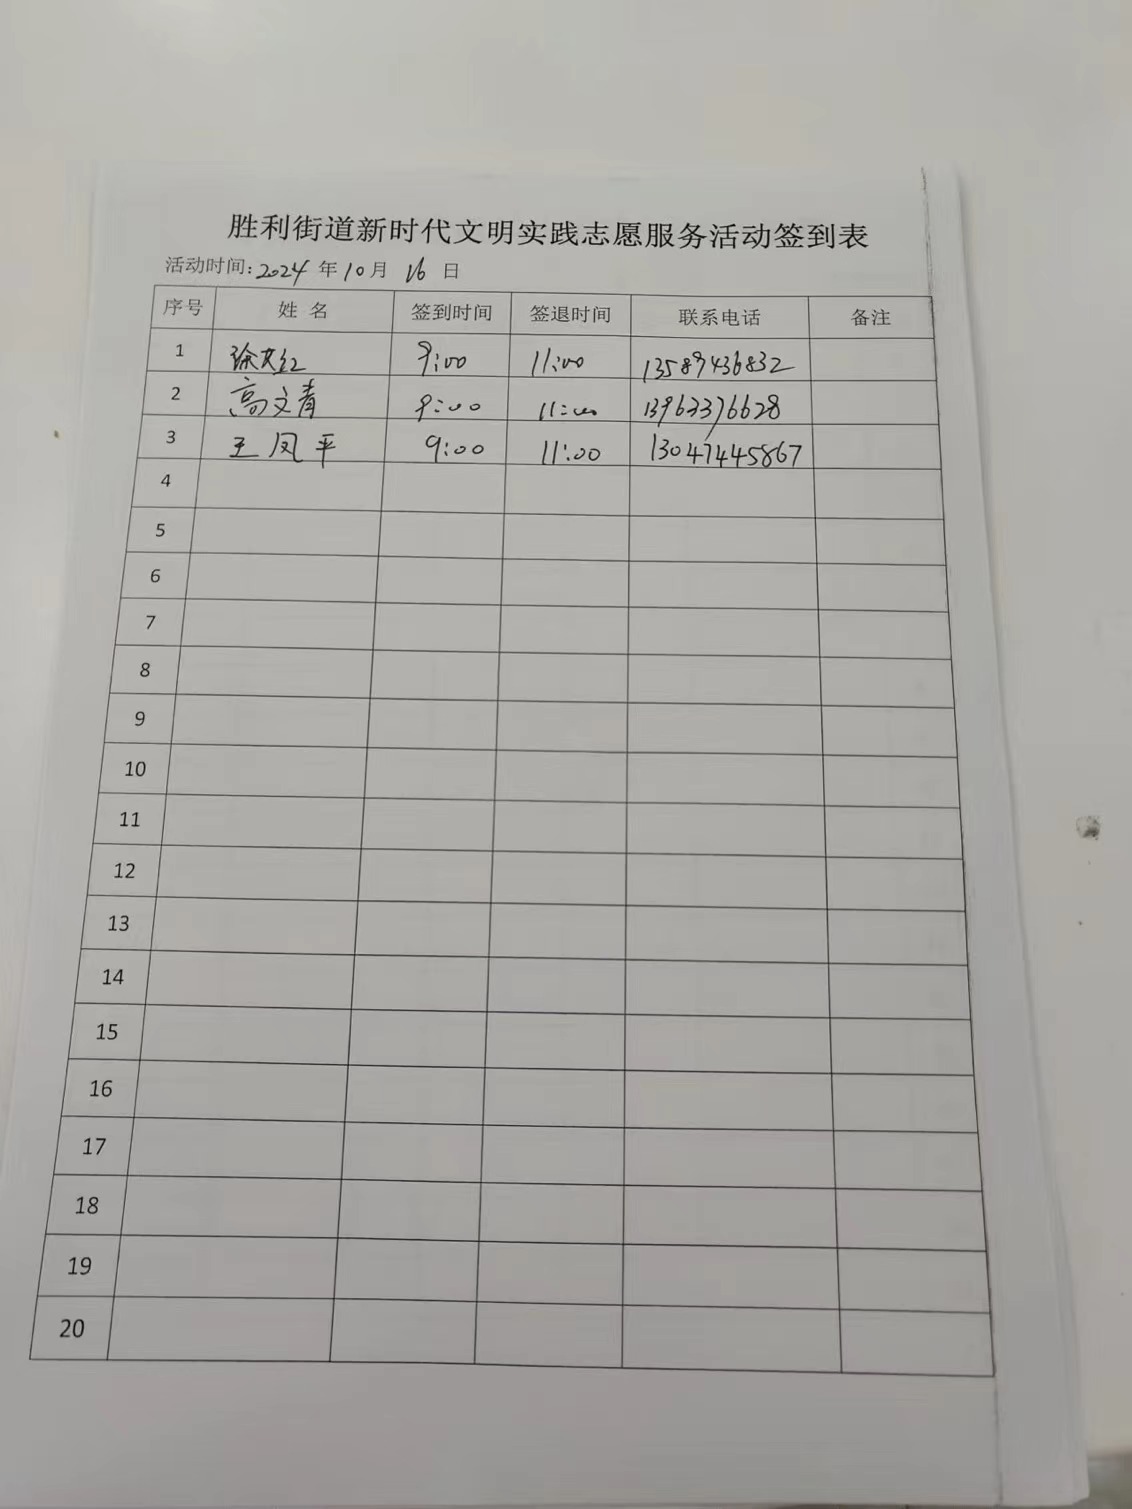 胜利街道新时代文明实践志愿服务活动签到表
活动时间:2024年10月16日
序号 姓名 签到时间 签退时间 联系电话 备注
1 徐艾红 9:00 11:00 13589436832
2 高文青 9:00 11:00 13963376628
3 王凤平 9:00 11:00 13047445867
4
5
6
7
8
9
10
11
12
13
14
15
16
17
18
19
20